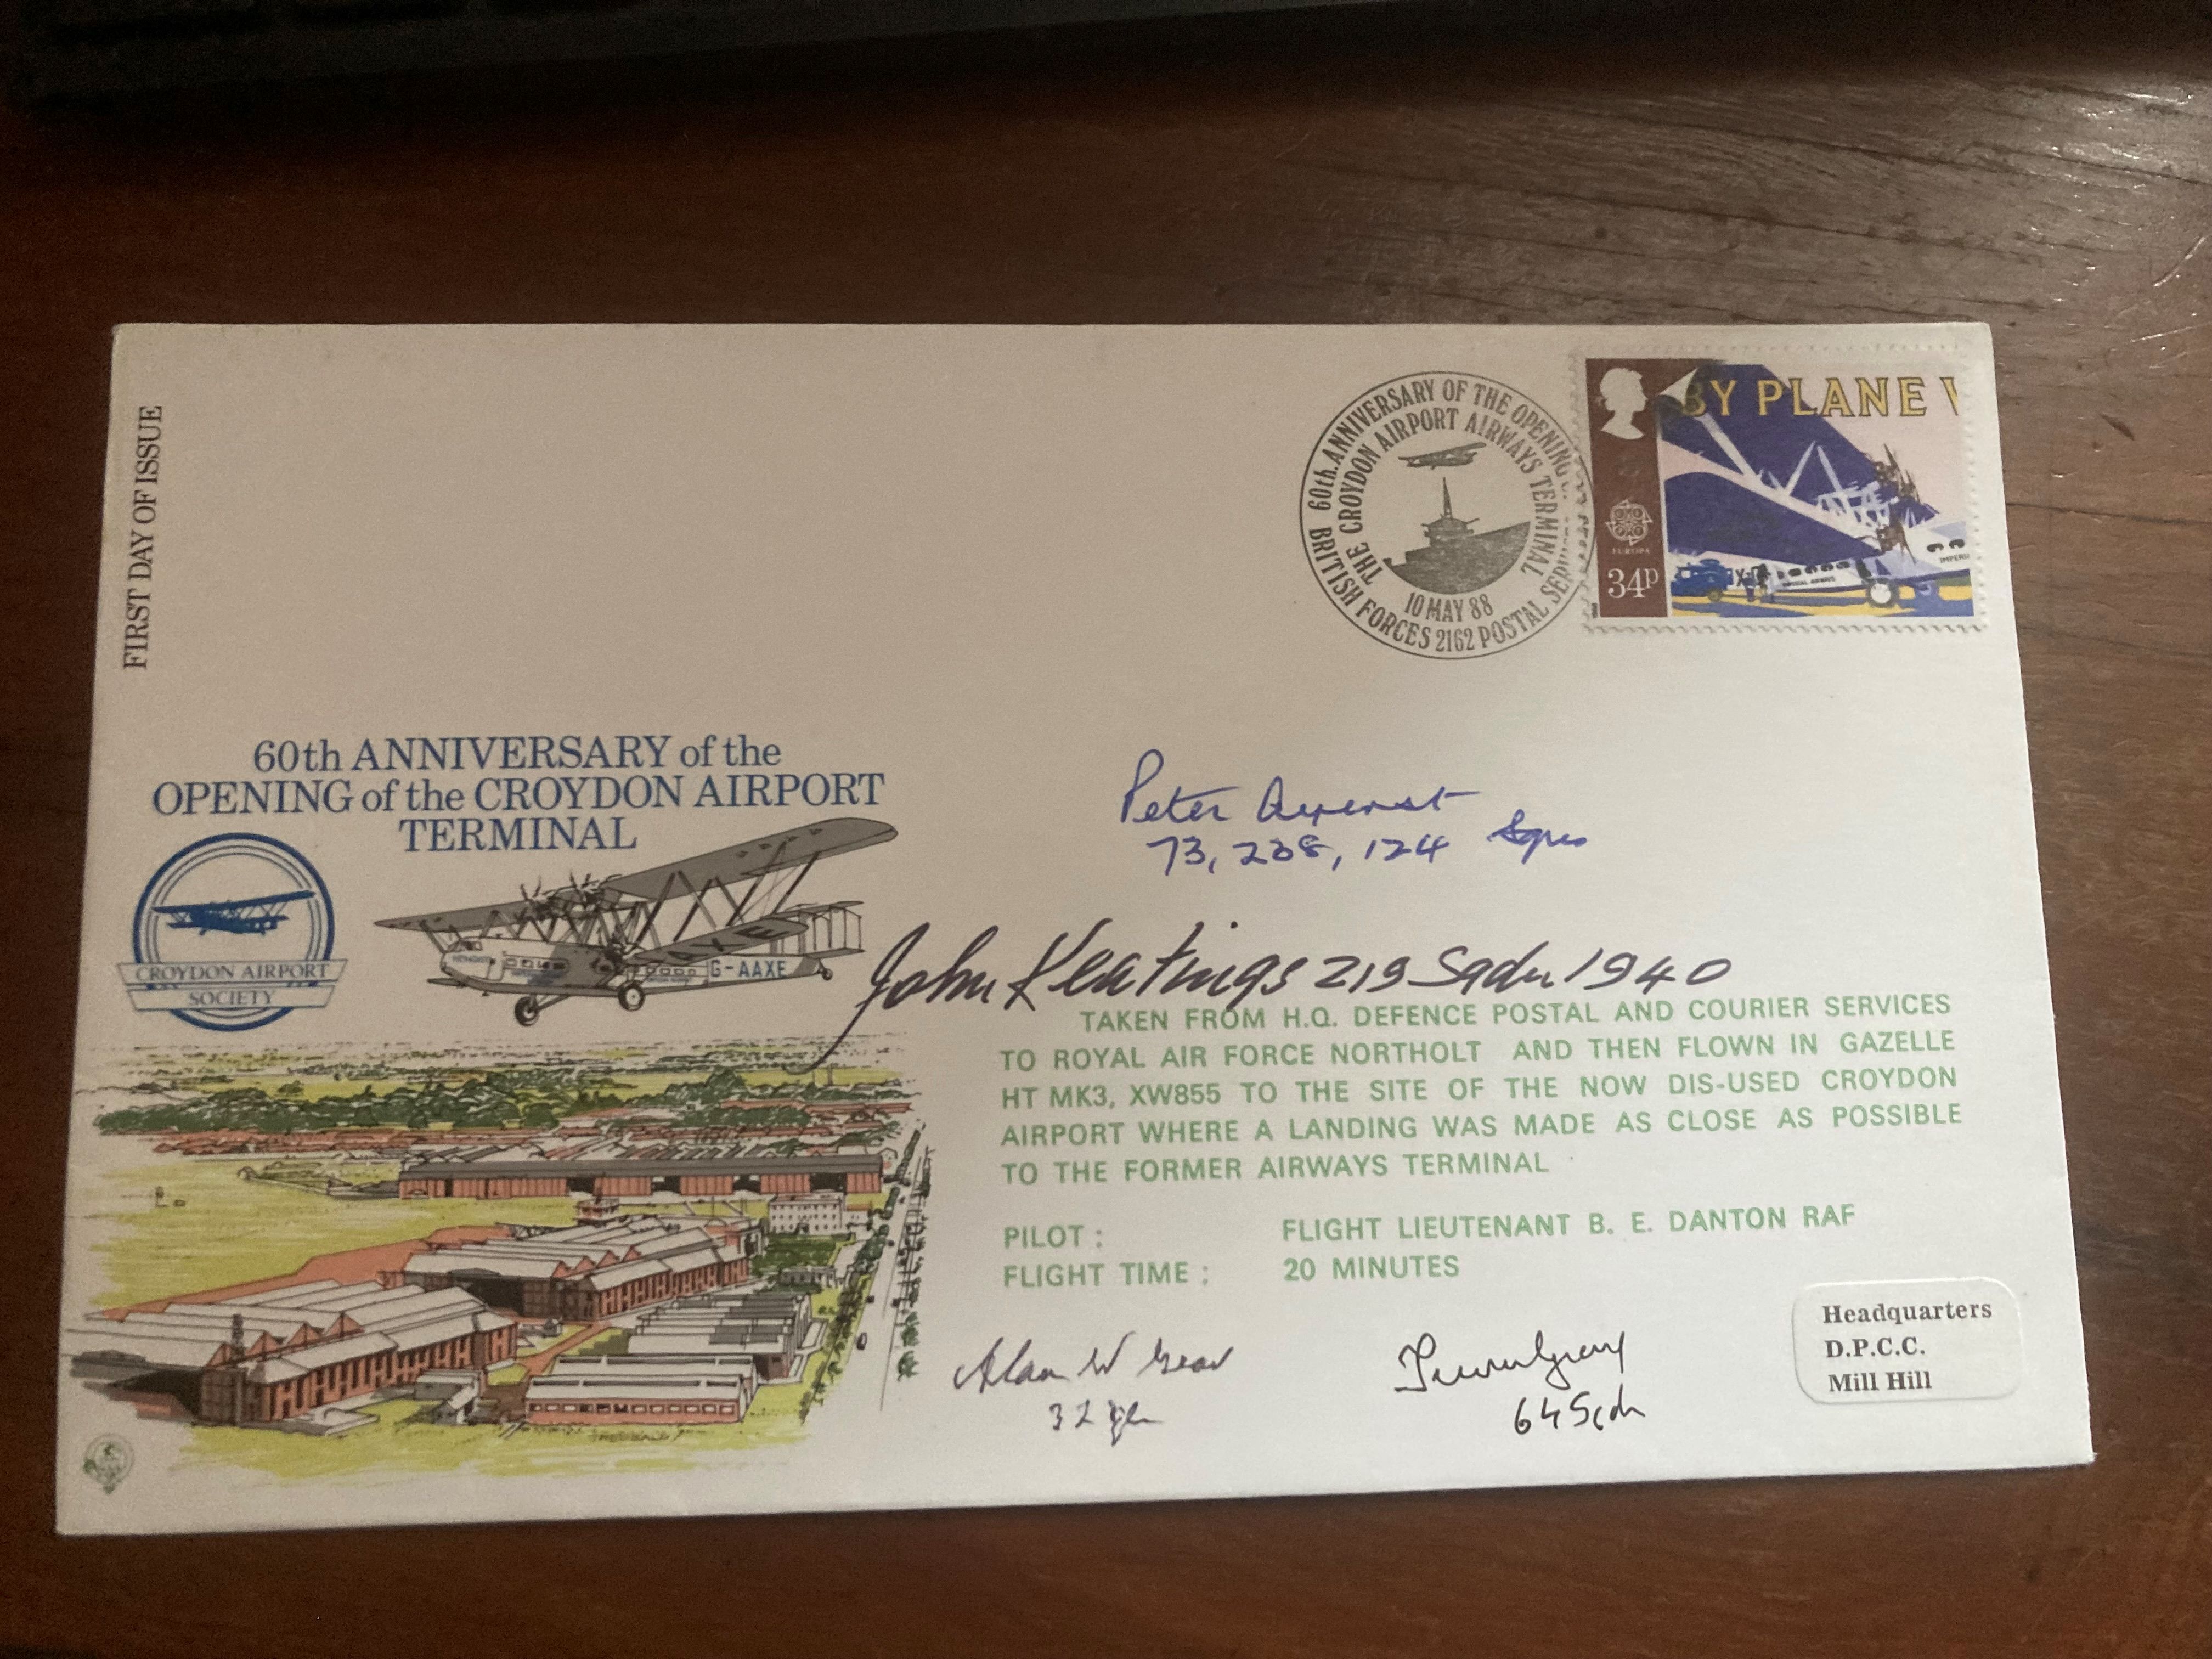 FIRST DAY OF ISSUE
60th. ANNIVERSARY OF THE OPENING OF
THE CROYDON AIRPORT AIRWAYS TERMINAL
10 MAY 88
BRITISH FORCES 2162 POSTAL SERVICE
BY PLANE
EUROPA
34P
IMPERIAL AIRWAYS
IMPERI
60th ANNIVERSARY of the
OPENING of the CROYDON AIRPORT
TERMINAL
CROYDON AIRPORT
SOCIETY
G-AAXE
Peter Ayerst
73, 238, 124 Sqns
John Keatings 219 Sqdn 1940
TAKEN FROM H.Q. DEFENCE POSTAL AND COURIER SERVICES
TO ROYAL AIR FORCE NORTHOLT AND THEN FLOWN IN GAZELLE
HT MK3, XW855 TO THE SITE OF THE NOW DIS-USED CROYDON
AIRPORT WHERE A LANDING WAS MADE AS CLOSE AS POSSIBLE
TO THE FORMER AIRWAYS TERMINAL
PILOT : FLIGHT LIEUTENANT B. E. DANTON RAF
FLIGHT TIME : 20 MINUTES
Alan W Gear
32
Trevor Gray
64 Sqdn
Headquarters
D.P.C.C.
Mill Hill